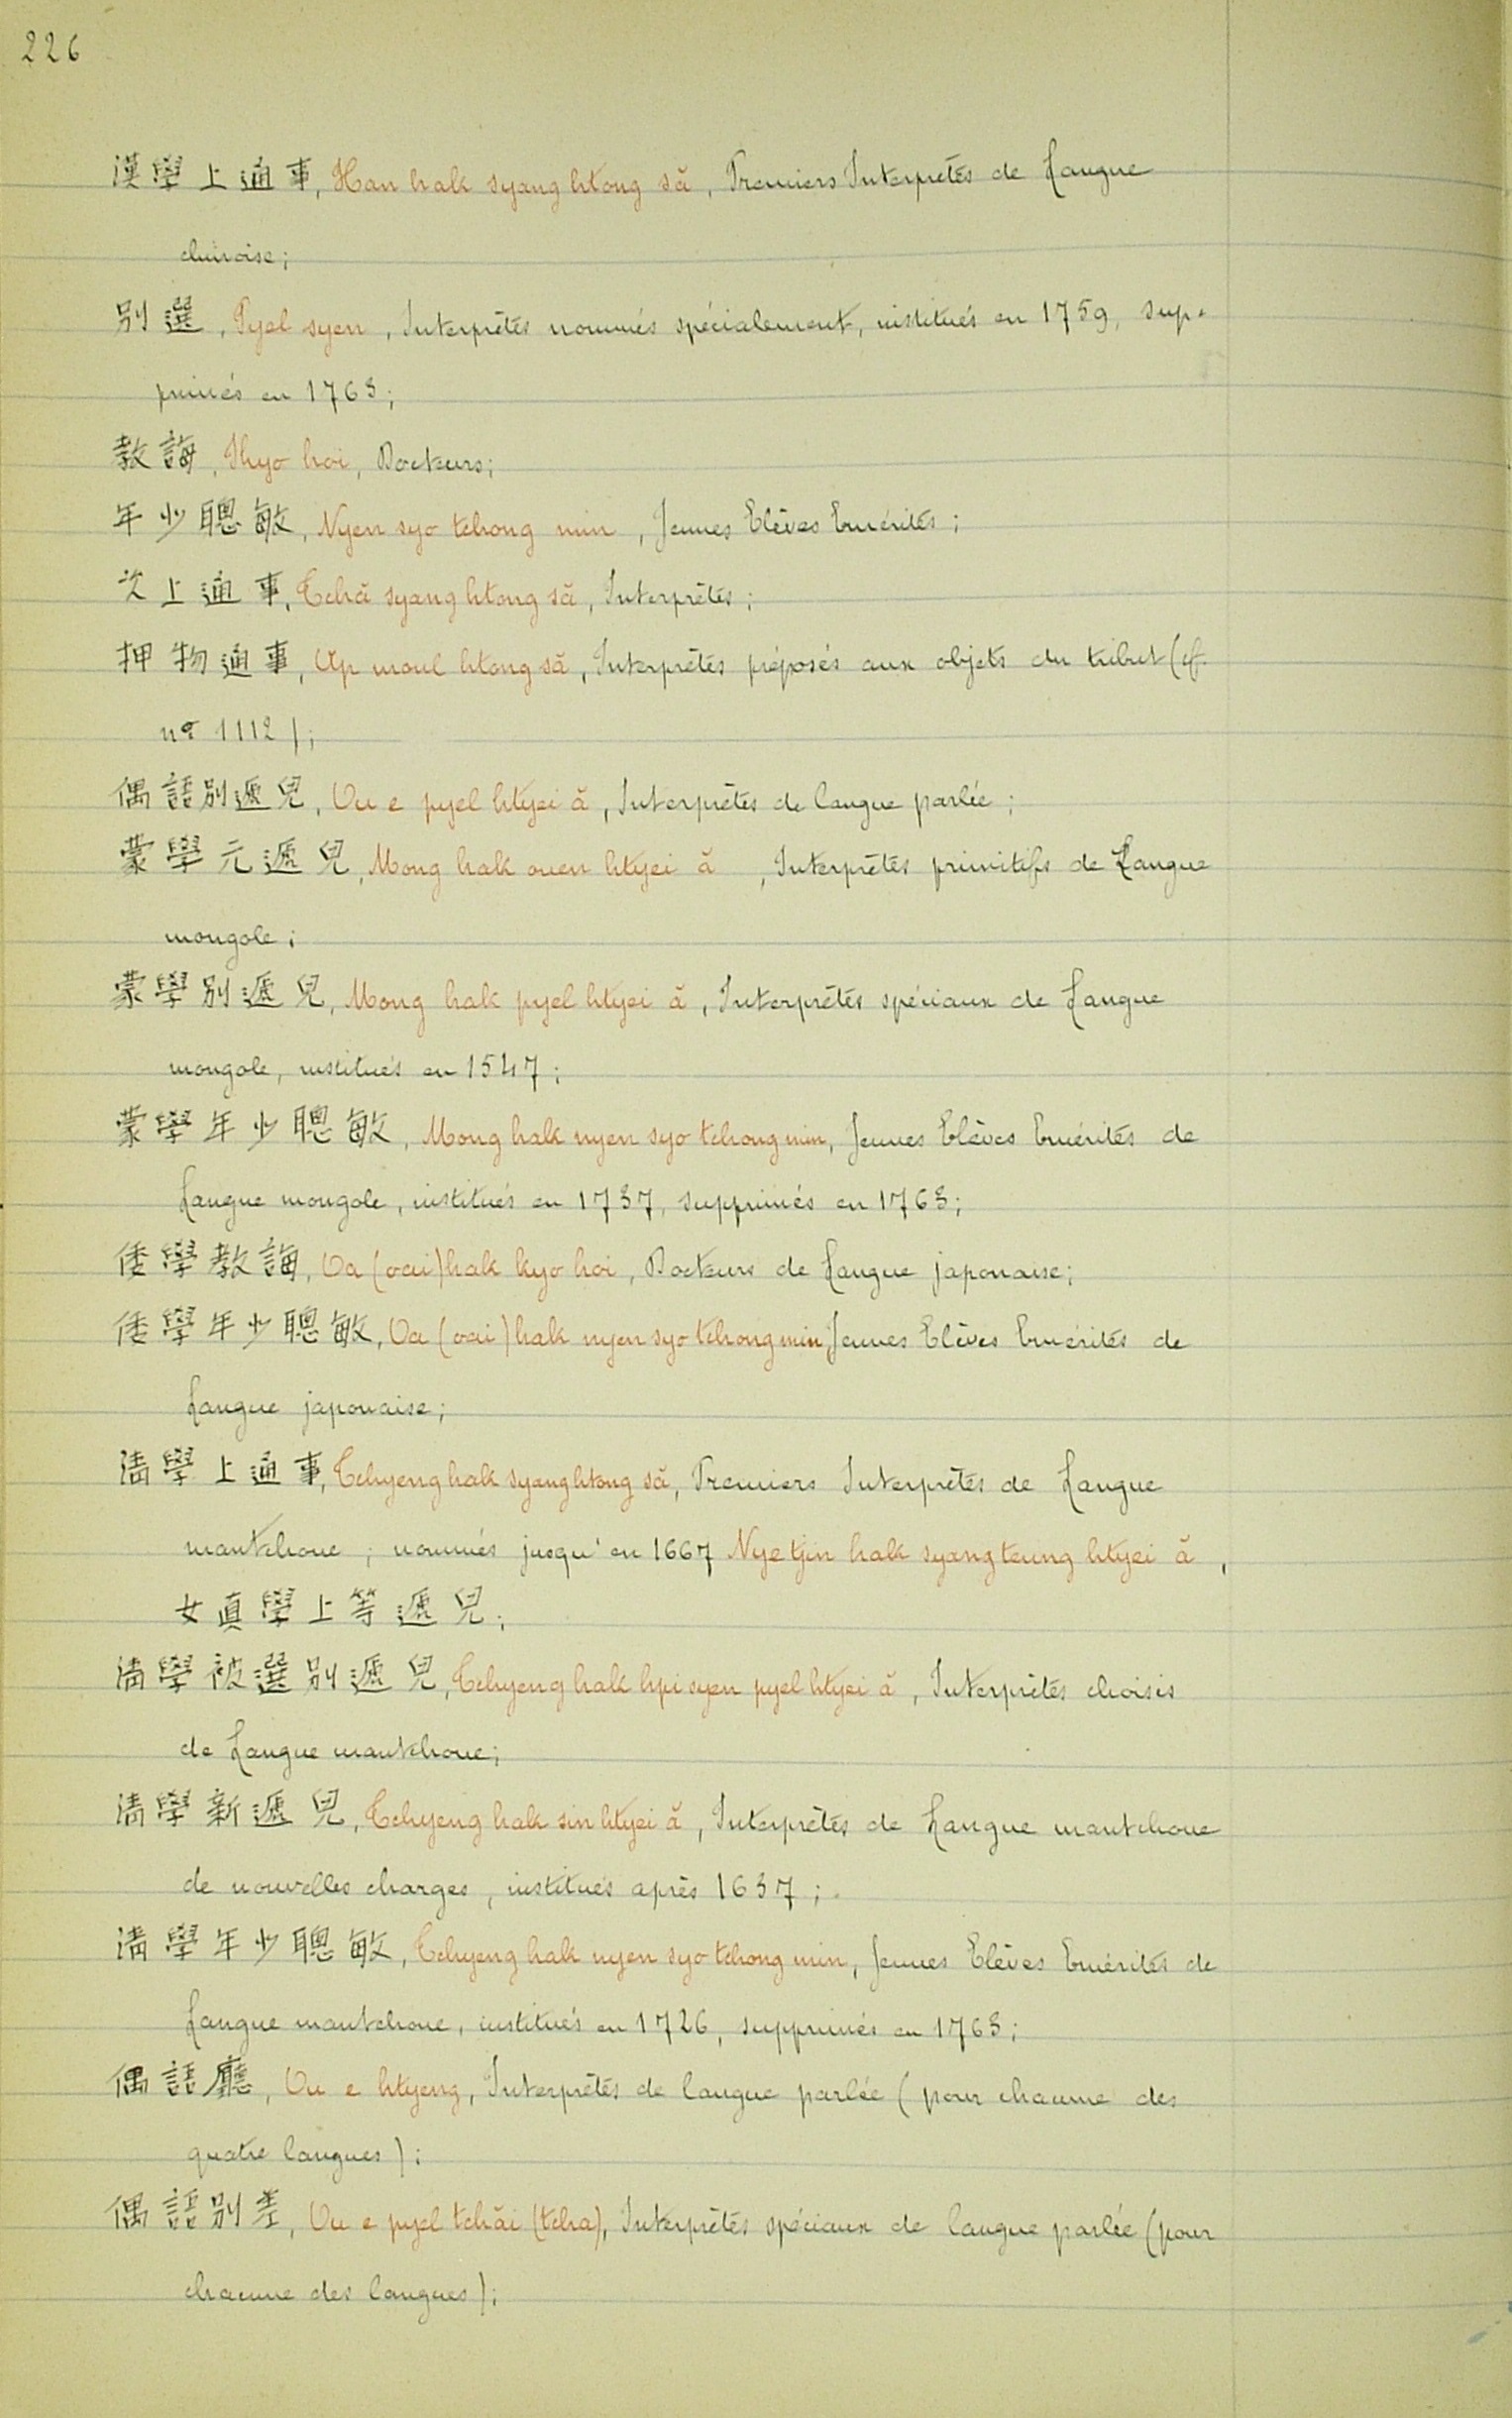 226
漢學上通事, Han hak syang htong să, Premiers Interprètes de Langue
chinoise;
別選, Pyel syen, Interprètes nommés spécialement, institués en 1759, sup-
primés en 1763;
教誨, Kyo hoi, Docteurs;
年少聰敏, Nyen syo tchong min, Jeunes Elèves Emérites;
次上通事, Tchă syang htong să, Interprètes;
押物通事, Ap moul htong să, Interprètes préposés aux objets du tribut (cf.
nº 1112);
偶語別遞兒, Ou e pyel htyei ă, Interprètes de langue parlée;
蒙學元遞兒, Mong hak ouen htyei ă, Interprètes primitifs de Langue
mongole;
蒙學別遞兒, Mong hak pyel htyei ă, Interprètes spéciaux de Langue
mongole, institués en 1547;
蒙學年少聰敏, Mong hak nyen syo tchong min, Jeunes Elèves Emérites de
Langue mongole, institués en 1737, supprimés en 1763;
倭學教誨, Oa (oai) hak kyo hoi, Docteurs de Langue japonaise;
倭學年少聰敏, Oa (oai) hak nyen syo tchong min, Jeunes Elèves Emérites de
Langue japonaise;
清學上通事, Tchyeng hak syang htong să, Premiers Interprètes de Langue
mantchoue; nommés jusqu'en 1667 Nye tjin hak syang teung htyei ă,
女眞學上等遞兒;
清學被選別遞兒, Tchyeng hak hpi syen pyel htyei ă, Interprètes choisis
de Langue mantchoue;
清學新遞兒, Tchyeng hak sin htyei ă, Interprètes de Langue mantchoue
de nouvelles charges, institués après 1637;
清學年少聰敏, Tchyeng hak nyen syo tchong min, Jeunes Elèves Emérites de
Langue mantchoue, institués en 1726, supprimés en 1763;
偶語廳, Ou e htyeng, Interprètes de langue parlée (pour chacune des
quatre langues);
偶語別差, Ou e pyel tchăi (tcha), Interprètes spéciaux de langue parlée (pour
chacune des langues);